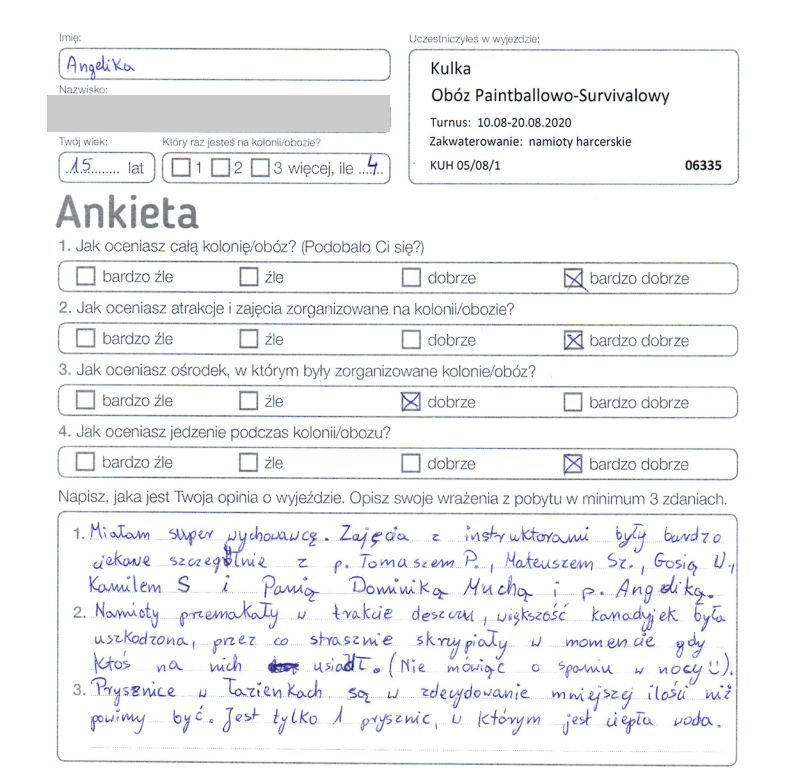 Imię:
Angelika
Nazwisko:
Twój wiek:
15 lat
Który raz jesteś na kolonii/obozie?
1 2 3 więcej, ile 4
Uczestniczyłeś w wyjeździe:
Kulka
Obóz Paintballowo-Survivalowy
Turnus: 10.08-20.08.2020
Zakwaterowanie: namioty harcerskie
KUH 05/08/1 06335
Ankieta
1. Jak oceniasz całą kolonię/obóz? (Podobało Ci się?)
bardzo źle źle dobrze bardzo dobrze
2. Jak oceniasz atrakcje i zajęcia zorganizowane na kolonii/obozie?
bardzo źle źle dobrze bardzo dobrze
3. Jak oceniasz ośrodek, w którym były zorganizowane kolonie/obóz?
bardzo źle źle dobrze bardzo dobrze
4. Jak oceniasz jedzenie podczas kolonii/obozu?
bardzo źle źle dobrze bardzo dobrze
Napisz, jaka jest Twoja opinia o wyjeździe. Opisz swoje wrażenia z pobytu w minimum 3 zdaniach.
1. Miałam super wychowawcę. Zajęcia z instruktorami były bardzo
ciekawe szczególnie z p. Tomaszem P., Mateuszem Sz., Gosią W.,
Kamilem S i Panią Dominiką Muchą i p. Angeliką.
2. Namioty przemakały w trakcie deszczu, większość kanadyjek była
uszkodzona, przez co strasznie skrzypiały w momencie gdy
ktoś na nich usiadł. (Nie mówiąc o spaniu w nocy :)).
3. Prysznice w łazienkach są w zdecydowanie mniejszej ilości niż
powinny być. Jest tylko 1 prysznic, w którym jest ciepła woda.